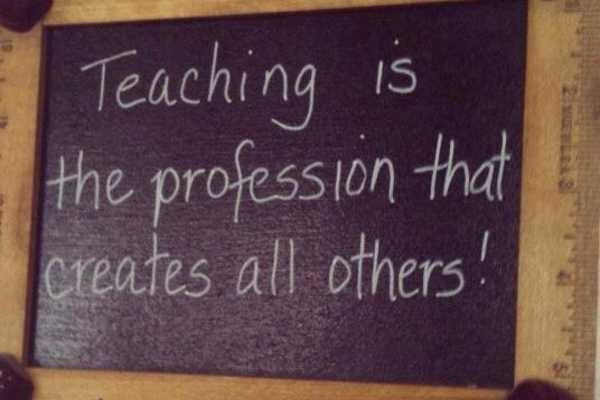 Teaching is
the profession that
creates all others!